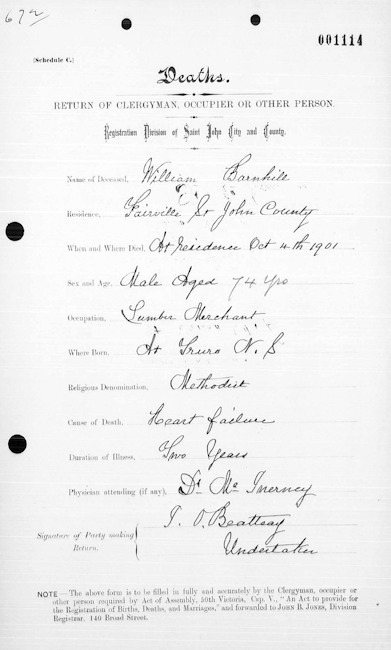 672
001114
(Schedule C.)
Deaths.
RETURN OF CLERGYMAN, OCCUPIER OR OTHER PERSON.
Registration Division of Saint John City and County.
Name of Deceased, William Barnhill
Residence, Fairville St John County
When and Where Died, At residence Oct 4th 1901
Sex and Age, Male Aged 74 yrs
Occupation, Lumber Merchant
Where Born, At Truro N. S
Religious Denomination, Methodist
Cause of Death, Heart failure
Duration of Illness, Two Years
Physician attending (if any), Dr Mc Inerney
Signature of Party making Return. T. O. Beatteay
Undertaker
NOTE — The above form is to be filled in fully and accurately by the Clergyman, occupier or
other person required by Act of Assembly, 50th Victoria, Cap. V., "An Act to provide for
the Registration of Births, Deaths, and Marriages," and forwarded to JOHN B. JONES, Division
Registrar, 140 Broad Street.